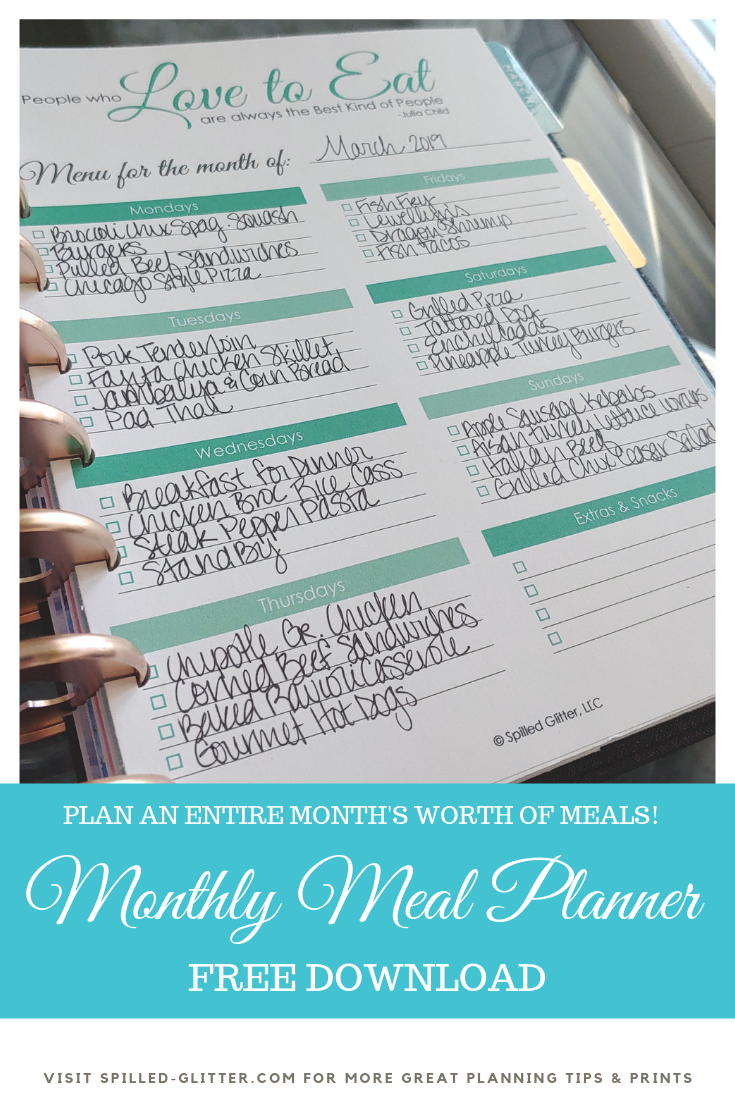 People who Love to Eat
are always the Best Kind of People
-Julia Child
Menu for the month of: March 2019
Mondays
Brocoli Chix Spag. Squash
Burgers
Pulled Beef Sandwiches
Chicago Style Pizza
Tuesdays
Pork Tenderloin
Fajita Chicken Skillet
Jambalaya & Corn Bread
Pad Thai
Wednesdays
Breakfast for Dinner
Chicken Broc Rice Cass
Steak Pepper Pasta
Stand By
Thursdays
Chipotle Gr. Chicken
Corned Beef Sandwiches
Baked Ravioli Casserole
Gourmet Hot Dogs
Fridays
Fish Fry
Llewellyn's
Dragon Shrump
Fish Tacos
Saturdays
Grilled Pizza
Tattooed Dog
Enchiladas
Pineapple Turkey Burgers
Sundays
Apple Sausage Kebabs
Asian Turkey Lettuce Wraps
Italian Beef
Grilled Chix Ceasar Salad
Extras & Snacks
© Spilled Glitter, LLC
PLAN AN ENTIRE MONTH'S WORTH OF MEALS!
Monthly Meal Planner
FREE DOWNLOAD
VISIT SPILLED-GLITTER.COM FOR MORE GREAT PLANNING TIPS & PRINTS